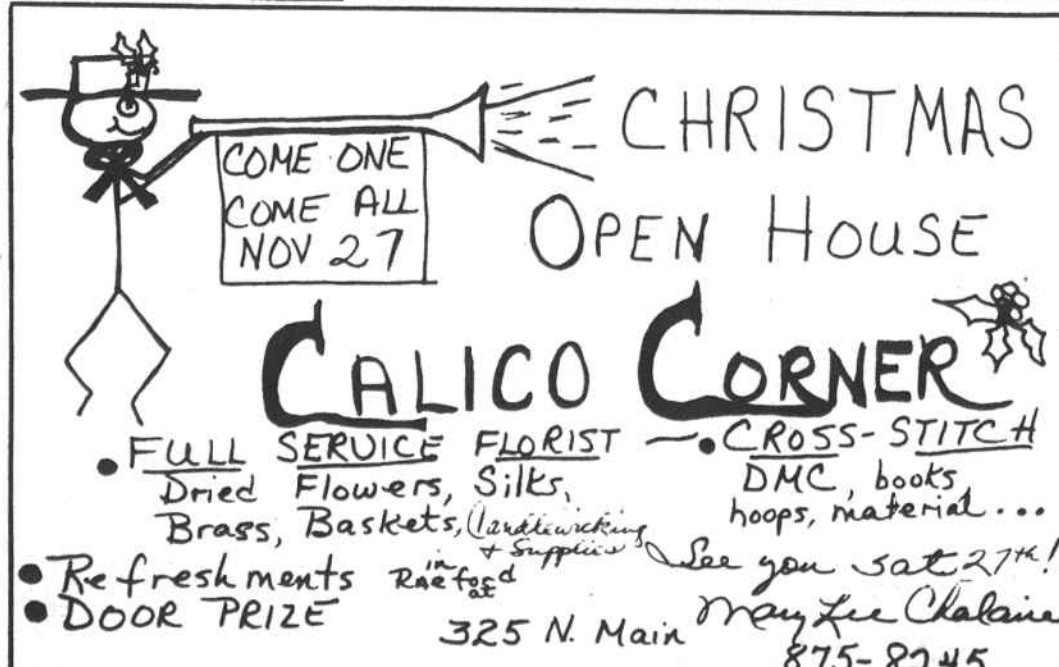 CHRISTMAS
OPEN HOUSE
COME ONE
COME ALL
NOV 27
CALICO CORNER
• FULL SERVICE FLORIST —
Dried Flowers, Silks,
Brass, Baskets, Candlewicking
+ Supplies
• CROSS-STITCH
DMC, books,
hoops, material...
• Refreshments
• DOOR PRIZE
in
Raeford
at
325 N. Main
See you sat 27th!
Mary Lee
875-8245